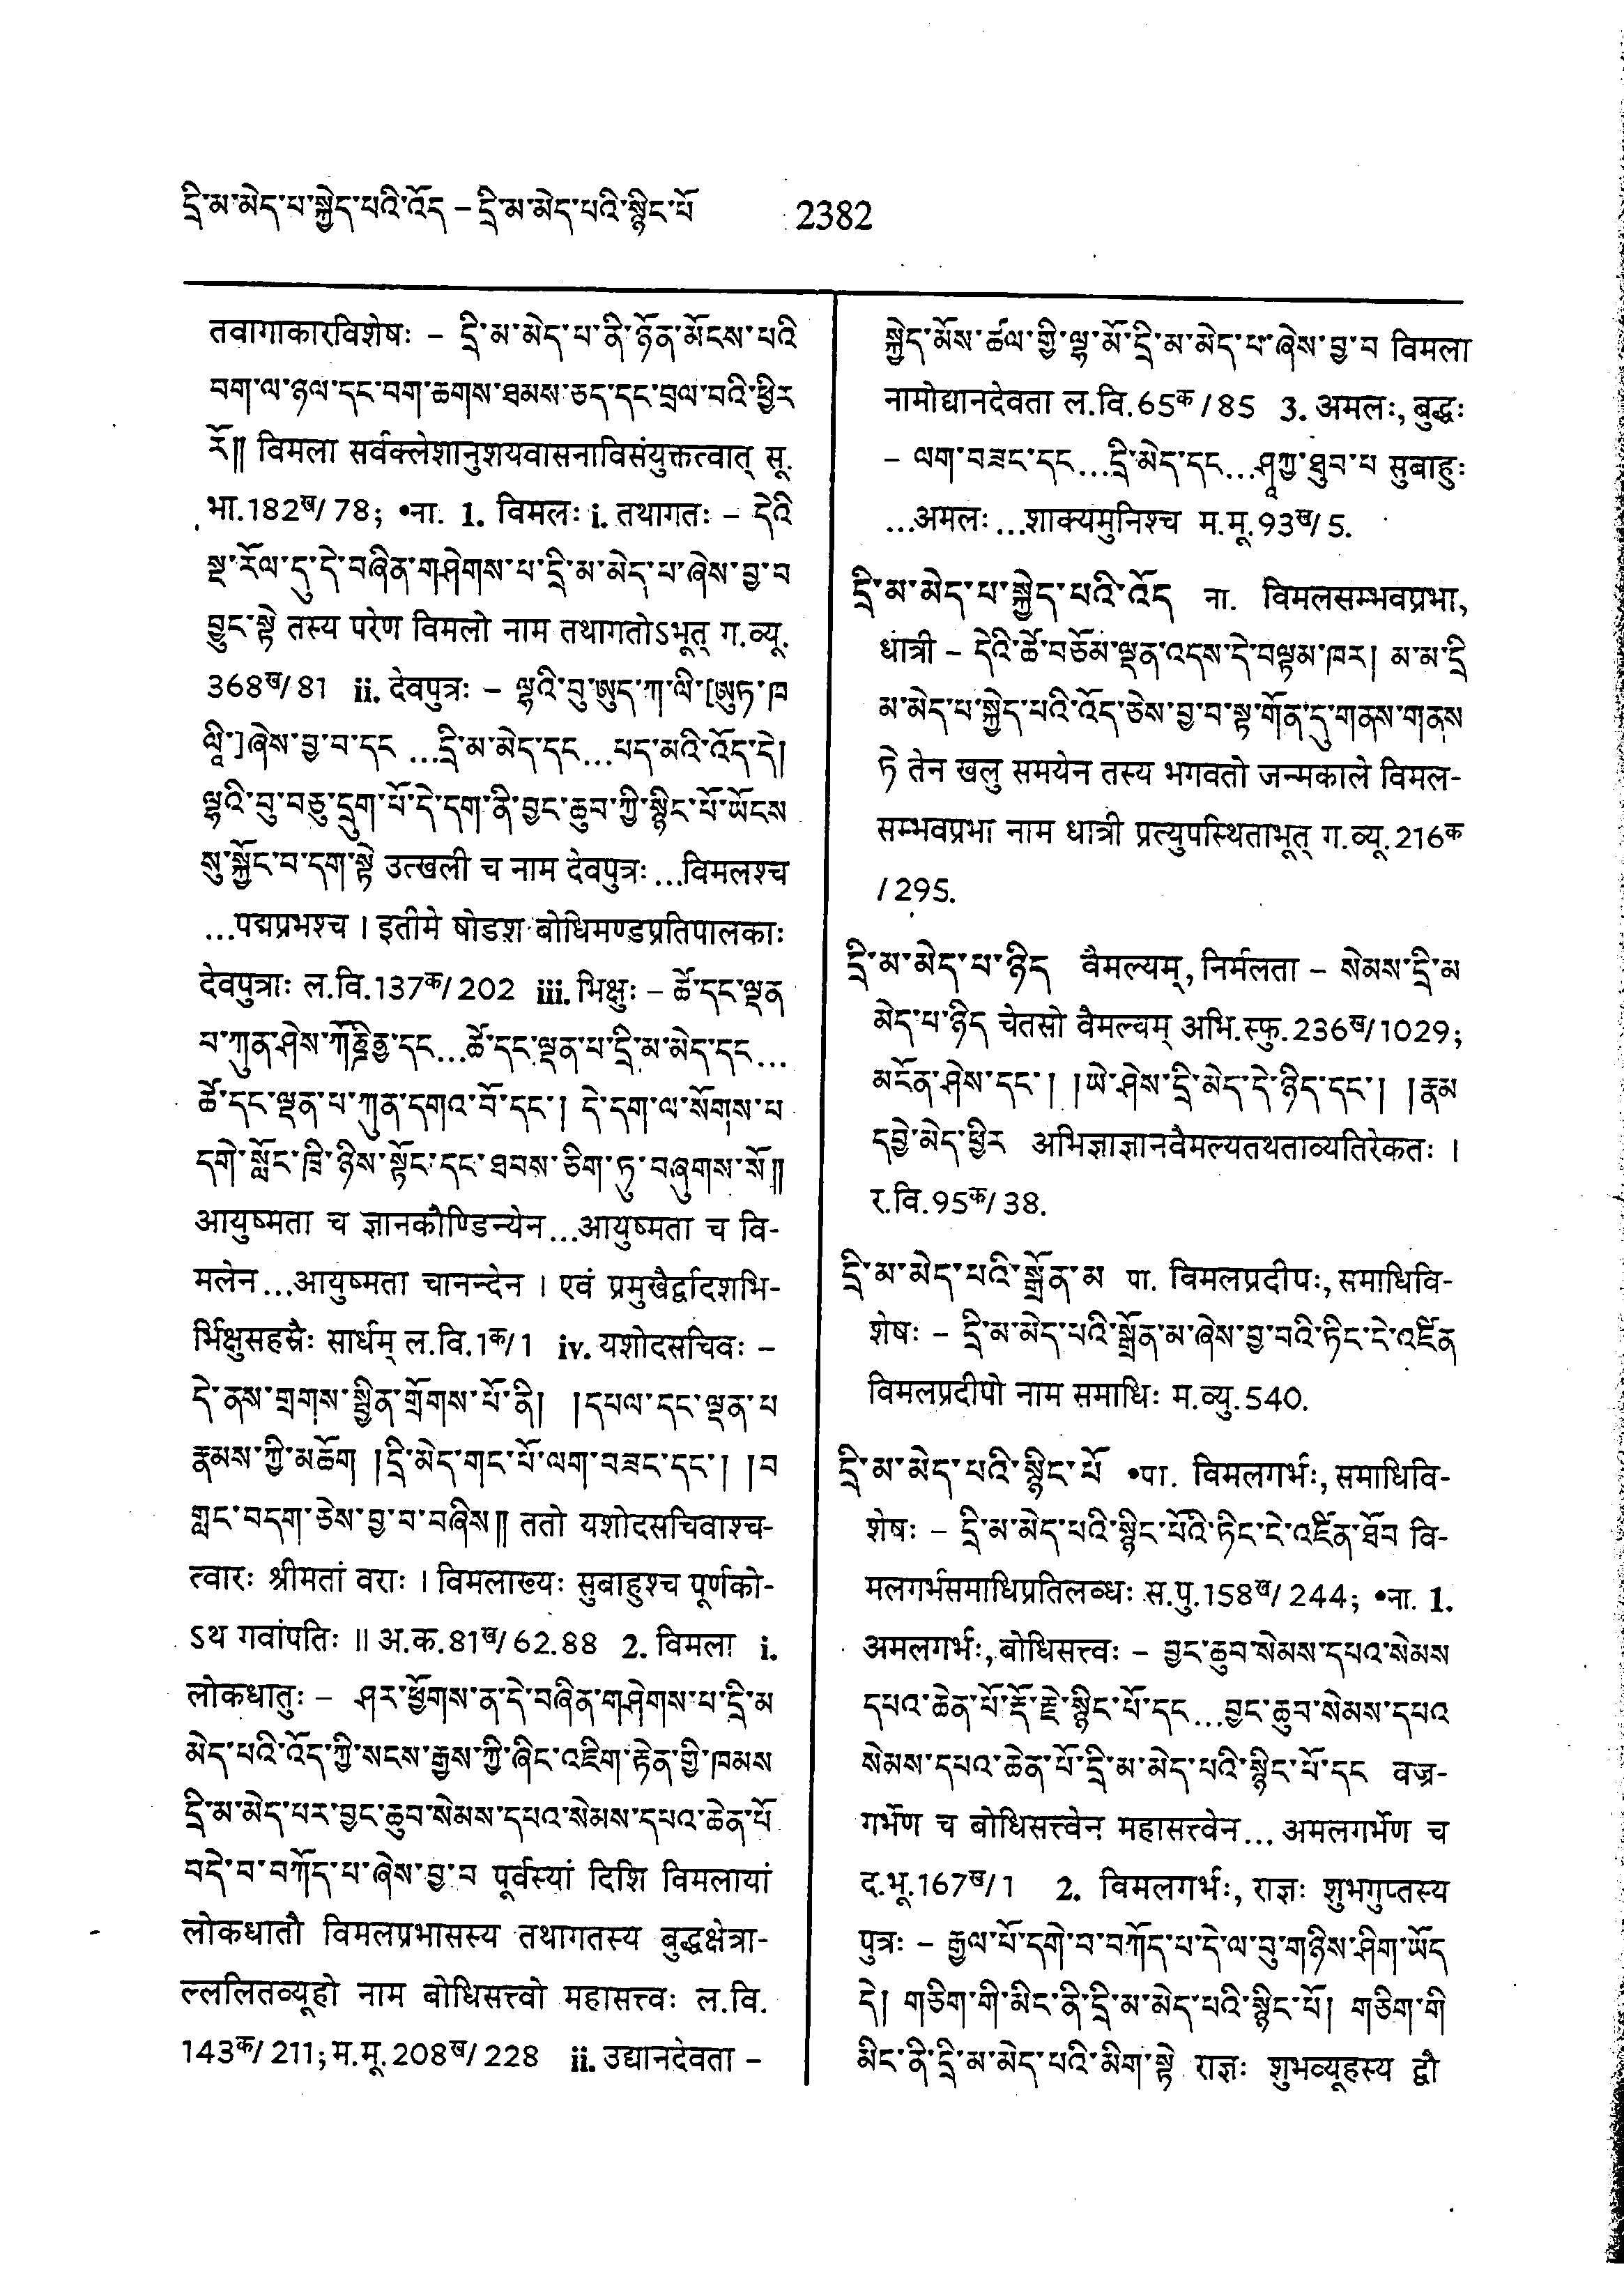 དྲི་མ་མེད་པ་སྐྱེད་པའི་འོད – དྲི་མ་མེད་པའི་སྙིང་པོ 2382
तवागाकारविशेषः – དྲི་མ་མེད་པ་ནི་ཉོན་མོངས་པའི
བག་ལ་ཉལ་དང་བག་ཆགས་ཐམས་ཅད་དང་བྲལ་བའི་ཕྱིར
རོ༎ विमला सर्वक्लेशानुशयवासनाविसंयुक्तत्वात् सू.
भा.182ख/78; •ना. 1. विमलः i. तथागतः – དེའི
སྔ་རོལ་དུ་དེ་བཞིན་གཤེགས་པ་དྲི་མ་མེད་པ་ཞེས་བྱ་བ
བྱུང་སྟེ तस्य परेण विमलो नाम तथागतोऽभूत् ग.व्यू.
368ख/81 ii. देवपुत्रः – ལྷའི་བུ་ཨུད་ཀ་ལི་[ཨུཏ་ཁ
ལཱི་]ཞེས་བྱ་བ་དང ...དྲི་མ་མེད་དང...པད་མའི་འོད་དེ།
ལྷའི་བུ་བཅུ་དྲུག་པོ་དེ་དག་ནི་བྱང་ཆུབ་ཀྱི་སྙིང་པོ་ཡོངས
སུ་སྐྱོང་བ་དག་སྟེ उत्खली च नाम देवपुत्रः...विमलश्च
...पद्मप्रभश्च । इतीमे षोडश बोधिमण्डप्रतिपालकाः
देवपुत्राः ल.वि.137क/202 iii. भिक्षुः – ཚེ་དང་ལྡན
པ་ཀུན་ཤེས་ཀོཎྜི་ནྱ་དང...ཚེ་དང་ལྡན་པ་དྲི་མ་མེད་དང...
ཚེ་དང་ལྡན་པ་ཀུན་དགའ་བོ་དང་། དེ་དག་ལ་སོགས་པ
དགེ་སློང་ཁྲི་ཉིས་སྟོང་དང་ཐབས་ཅིག་ཏུ་བཞུགས་སོ༎
आयुष्मता च ज्ञानकौण्डिन्येन...आयुष्मता च वि-
मलेन...आयुष्मता चानन्देन । एवं प्रमुखैर्द्वादशभि-
र्भिक्षुसहस्रैः सार्धम् ल.वि.1क/1 iv. यशोदसचिवः –
དེ་ནས་གྲགས་སྦྱིན་གྲོགས་པོ་ནི། །དཔལ་དང་ལྡན་པ
རྣམས་ཀྱི་མཆོག །དྲི་མེད་གང་པོ་ལག་བཟང་དང་། །བ
གླང་བདག་ཅེས་བྱ་བ་བཞིས༎ ततो यशोदसचिवाश्च-
त्वारः श्रीमतां वराः । विमलाख्यः सुबाहुश्च पूर्णको-
ऽथ गवांपतिः ॥ अ.क.81ख/62.88 2. विमला i.
लोकधातुः – ཤར་ཕྱོགས་ན་དེ་བཞིན་གཤེགས་པ་དྲི་མ
མེད་པའི་འོད་ཀྱི་སངས་རྒྱས་ཀྱི་ཞིང་འཇིག་རྟེན་གྱི་ཁམས
དྲི་མ་མེད་པར་བྱང་ཆུབ་སེམས་དཔའ་སེམས་དཔའ་ཆེན་པོ
བདེ་བ་བཀོད་པ་ཞེས་བྱ་བ पूर्वस्यां दिशि विमलायां
लोकधातौ विमलप्रभासस्य तथागतस्य बुद्धक्षेत्रा-
ल्ललितव्यूहो नाम बोधिसत्त्वो महासत्त्वः ल.वि.
143क/211; म.मू.208ख/228 ii. उद्यानदेवता –
སྐྱེད་མོས་ཚལ་གྱི་ལྷ་མོ་དྲི་མ་མེད་པ་ཞེས་བྱ་བ विमला
नामोद्यानदेवता ल.वि.65क/85 3. अमलः, बुद्धः
– ལག་བཟང་དང...དྲི་མེད་དང...ཤཱཀྱ་ཐུབ་པ सुबाहुः
...अमलः...शाक्यमुनिश्च म.मू.93ख/5.
དྲི་མ་མེད་པ་སྐྱེད་པའི་འོད ना. विमलसम्भवप्रभा,
धात्री – དེའི་ཚེ་བཅོམ་ལྡན་འདས་དེ་བལྟམ་ཁར། མ་མ་དྲི
མ་མེད་པ་སྐྱེད་པའི་འོད་ཅེས་བྱ་བ་སྟ་གོན་དུ་གནས་གནས
ཏེ तेन खलु समयेन तस्य भगवतो जन्मकाले विमल-
सम्भवप्रभा नाम धात्री प्रत्युपस्थिताभूत् ग.व्यू.216क
/295.
དྲི་མ་མེད་པ་ཉིད वैमल्यम्, निर्मलता – སེམས་དྲི་མ
མེད་པ་ཉིད चेतसो वैमल्यम् अभि.स्फु.236ख/1029;
མངོན་ཤེས་དང་། །ཡེ་ཤེས་དྲི་མེད་དེ་ཉིད་དང་། །རྣམ
དབྱེ་མེད་ཕྱིར अभिज्ञाज्ञानवैमल्यतथताव्यतिरेकतः ।
र.वि.95क/38.
དྲི་མ་མེད་པའི་སྒྲོན་མ पा. विमलप्रदीपः, समाधिवि-
शेषः – དྲི་མ་མེད་པའི་སྒྲོན་མ་ཞེས་བྱ་བའི་ཏིང་ངེ་འཛིན
विमलप्रदीपो नाम समाधिः म.व्यु.540.
དྲི་མ་མེད་པའི་སྙིང་པོ •पा. विमलगर्भः, समाधिवि-
शेषः – དྲི་མ་མེད་པའི་སྙིང་པོའི་ཏིང་ངེ་འཛིན་ཐོབ वि-
मलगर्भसमाधिप्रतिलब्धः स.पु.158ख/244; •ना. 1.
अमलगर्भः, बोधिसत्त्वः – བྱང་ཆུབ་སེམས་དཔའ་སེམས
དཔའ་ཆེན་པོ་རྡོ་རྗེ་སྙིང་པོ་དང...བྱང་ཆུབ་སེམས་དཔའ
སེམས་དཔའ་ཆེན་པོ་དྲི་མ་མེད་པའི་སྙིང་པོ་དང वज्र-
गर्भेण च बोधिसत्त्वेन महासत्त्वेन... अमलगर्भेण च
द.भू.167ख/1 2. विमलगर्भः, राज्ञः शुभगुप्तस्य
पुत्रः – རྒྱལ་པོ་དགེ་བ་བཀོད་པ་དེ་ལ་བུ་གཉིས་ཤིག་ཡོད
དེ། གཅིག་གི་མིང་ནི་དྲི་མ་མེད་པའི་སྙིང་པོ། གཅིག་གི
མིང་ནི་དྲི་མ་མེད་པའི་མིག་སྟེ राज्ञः शुभव्यूहस्य द्वौ